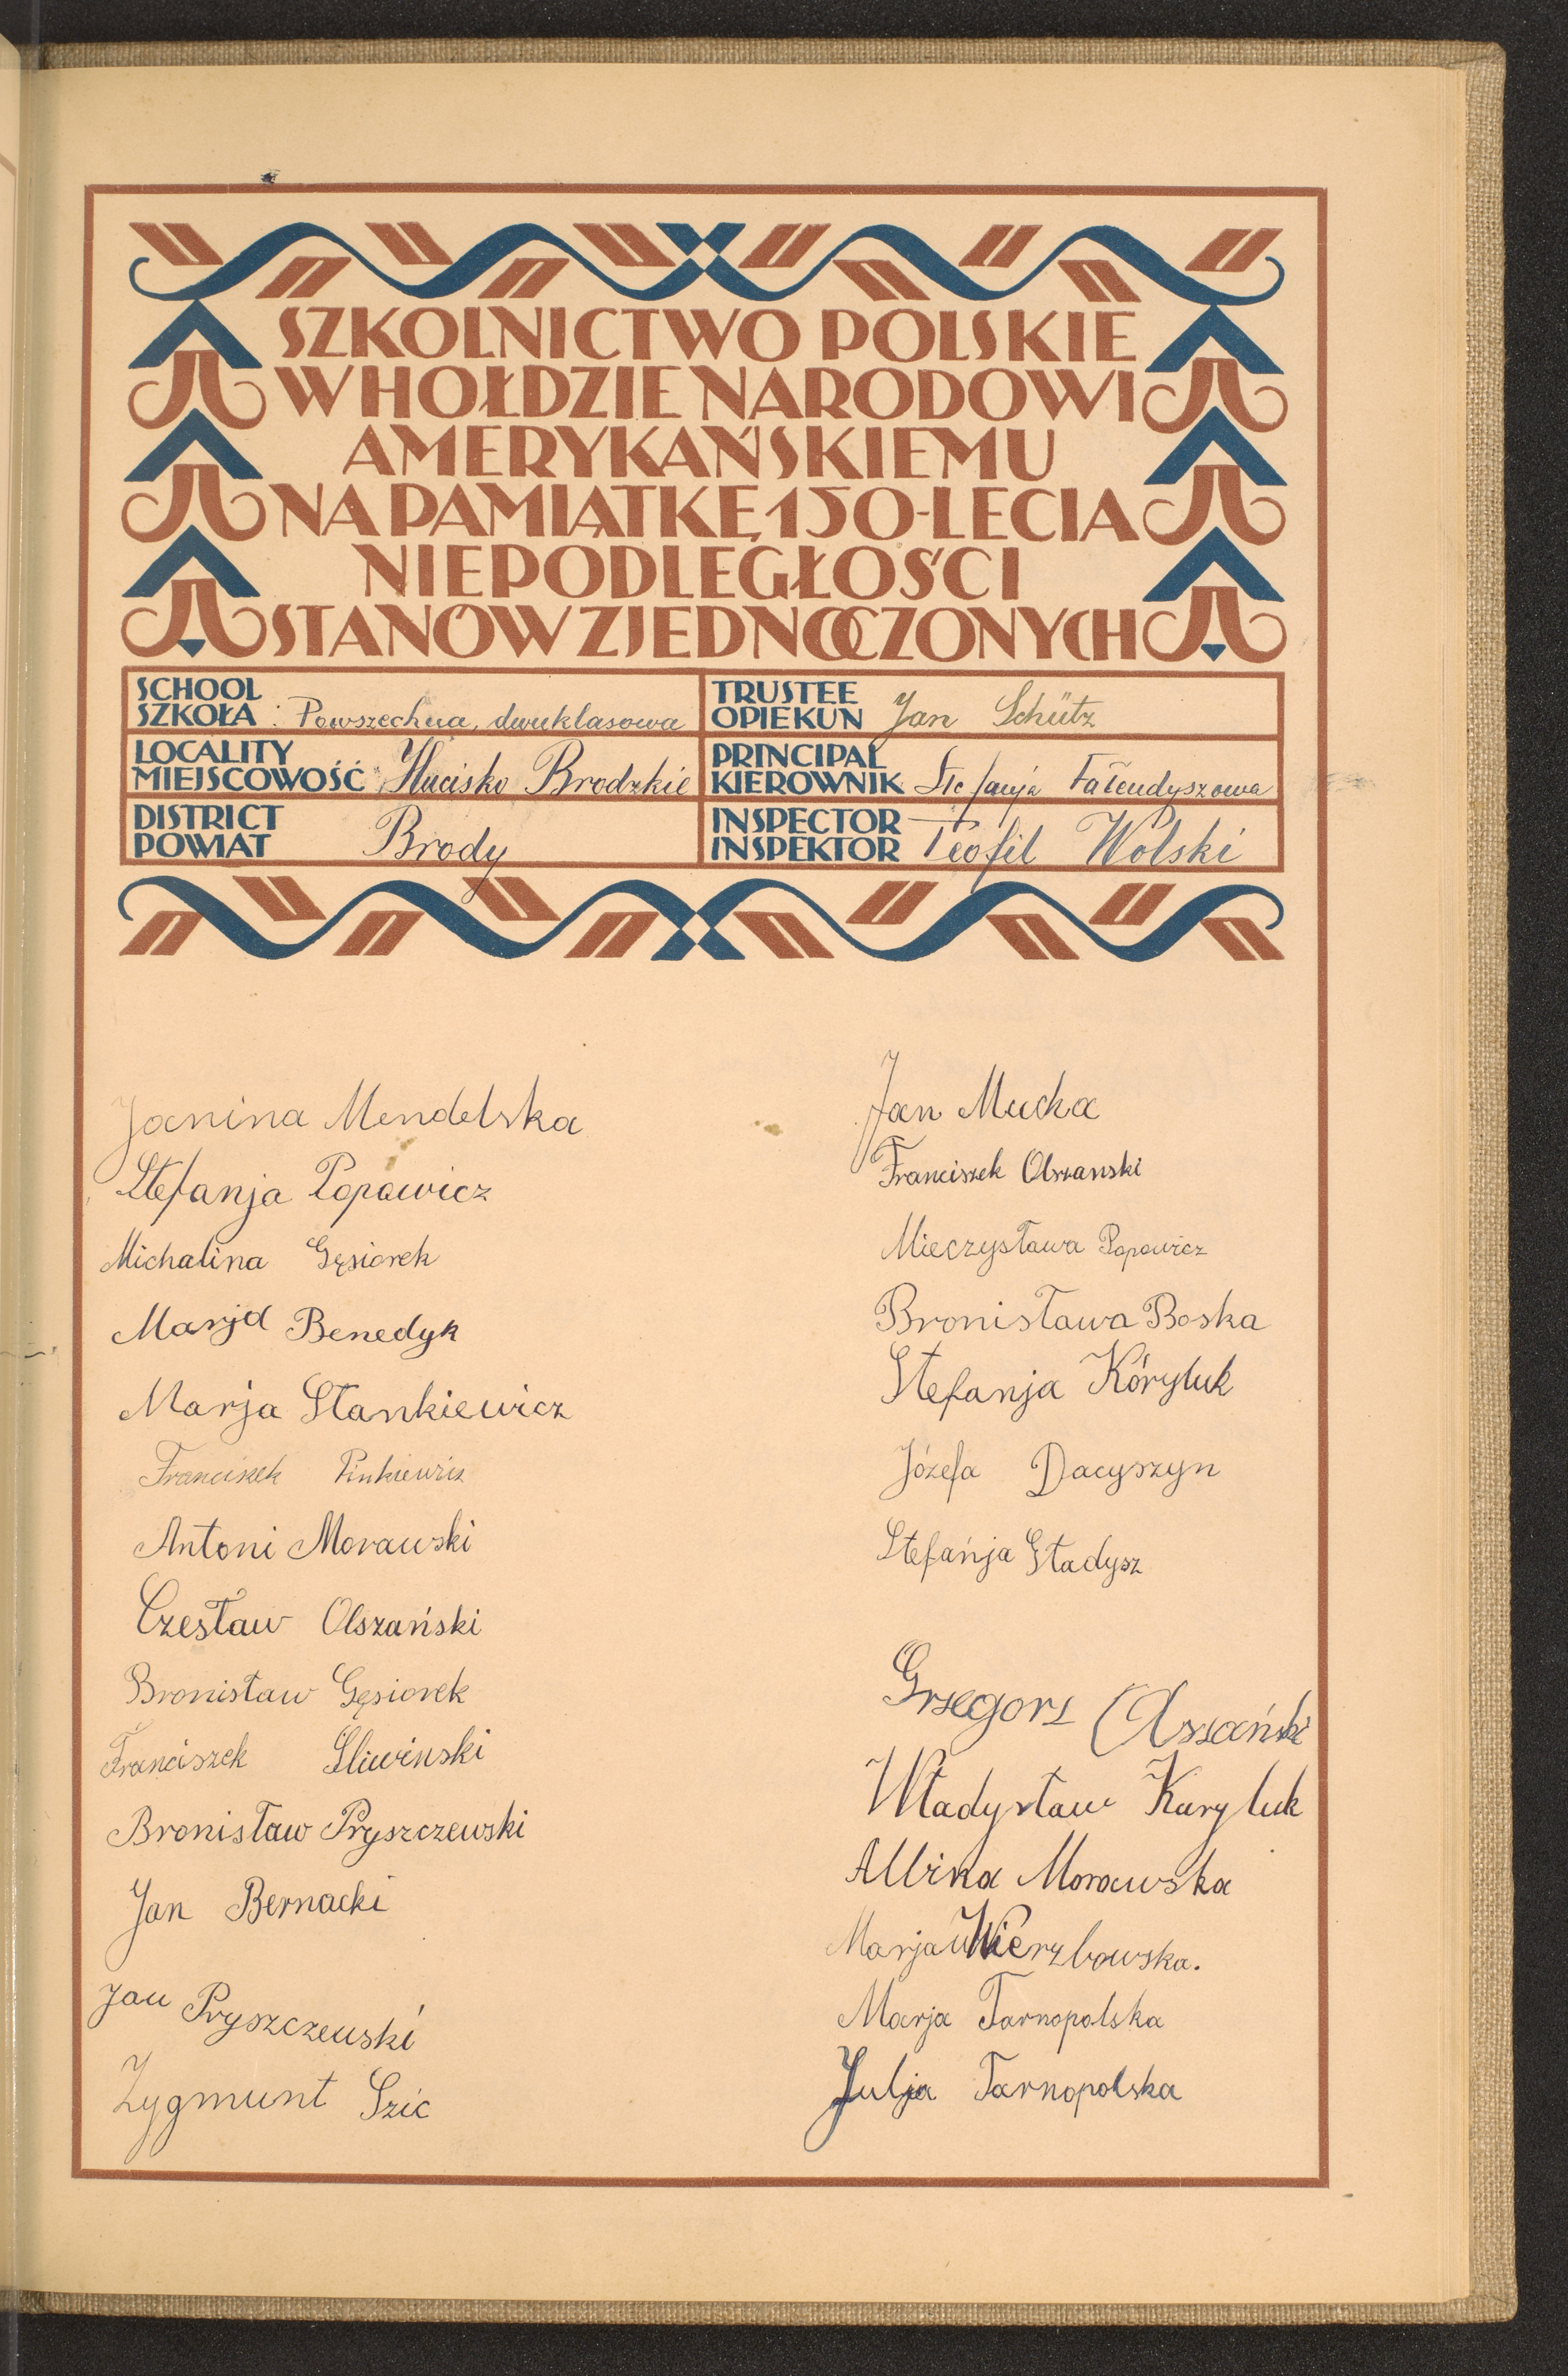 SZKOLNICTWO POLSKIE
W HOŁDZIE NARODOWI
AMERYKAŃSKIEMU
NA PAMIĄTKĘ 150-LECIA
NIEPODLEGŁOŚCI
STANÓW ZJEDNOCZONYCH
SCHOOL
SZKOŁA : Powszechna, dwuklasowa
TRUSTEE
OPIEKUN Jan Schütz
LOCALITY
MIEJSCOWOŚĆ Hucisko Brodzkie
PRINCIPAL
KIEROWNIK Stefanja Fałendyszowa
DISTRICT
POWIAT Brody
INSPECTOR
INSPEKTOR Teofil Wolski
Janina Mendelska
Stefanja Popowicz
Michalina Gęsiorek
Marja Benedyk
Marja Stankiewicz
Franciszek Pinkiewicz
Antoni Morawski
Czesław Olszański
Bronisław Gęsiorek
Franciszek Sliwinski
Bronisław Pryszczewski
Jan Bernacki
Jan Pryszczewski
Zygmunt Szic
Jan Mucka
Franciszek Olszanski
Mieczysława Popowicz
Bronisława Boska
Stefanja Kóryluk
Józefa Dacyszyn
Stefańja Gładysz
Grzegorz Olszański
Władysław Karyluk
Albina Morawska
Marja Wierzbowska.
Marja Tarnopolska
Julja Tarnopolska